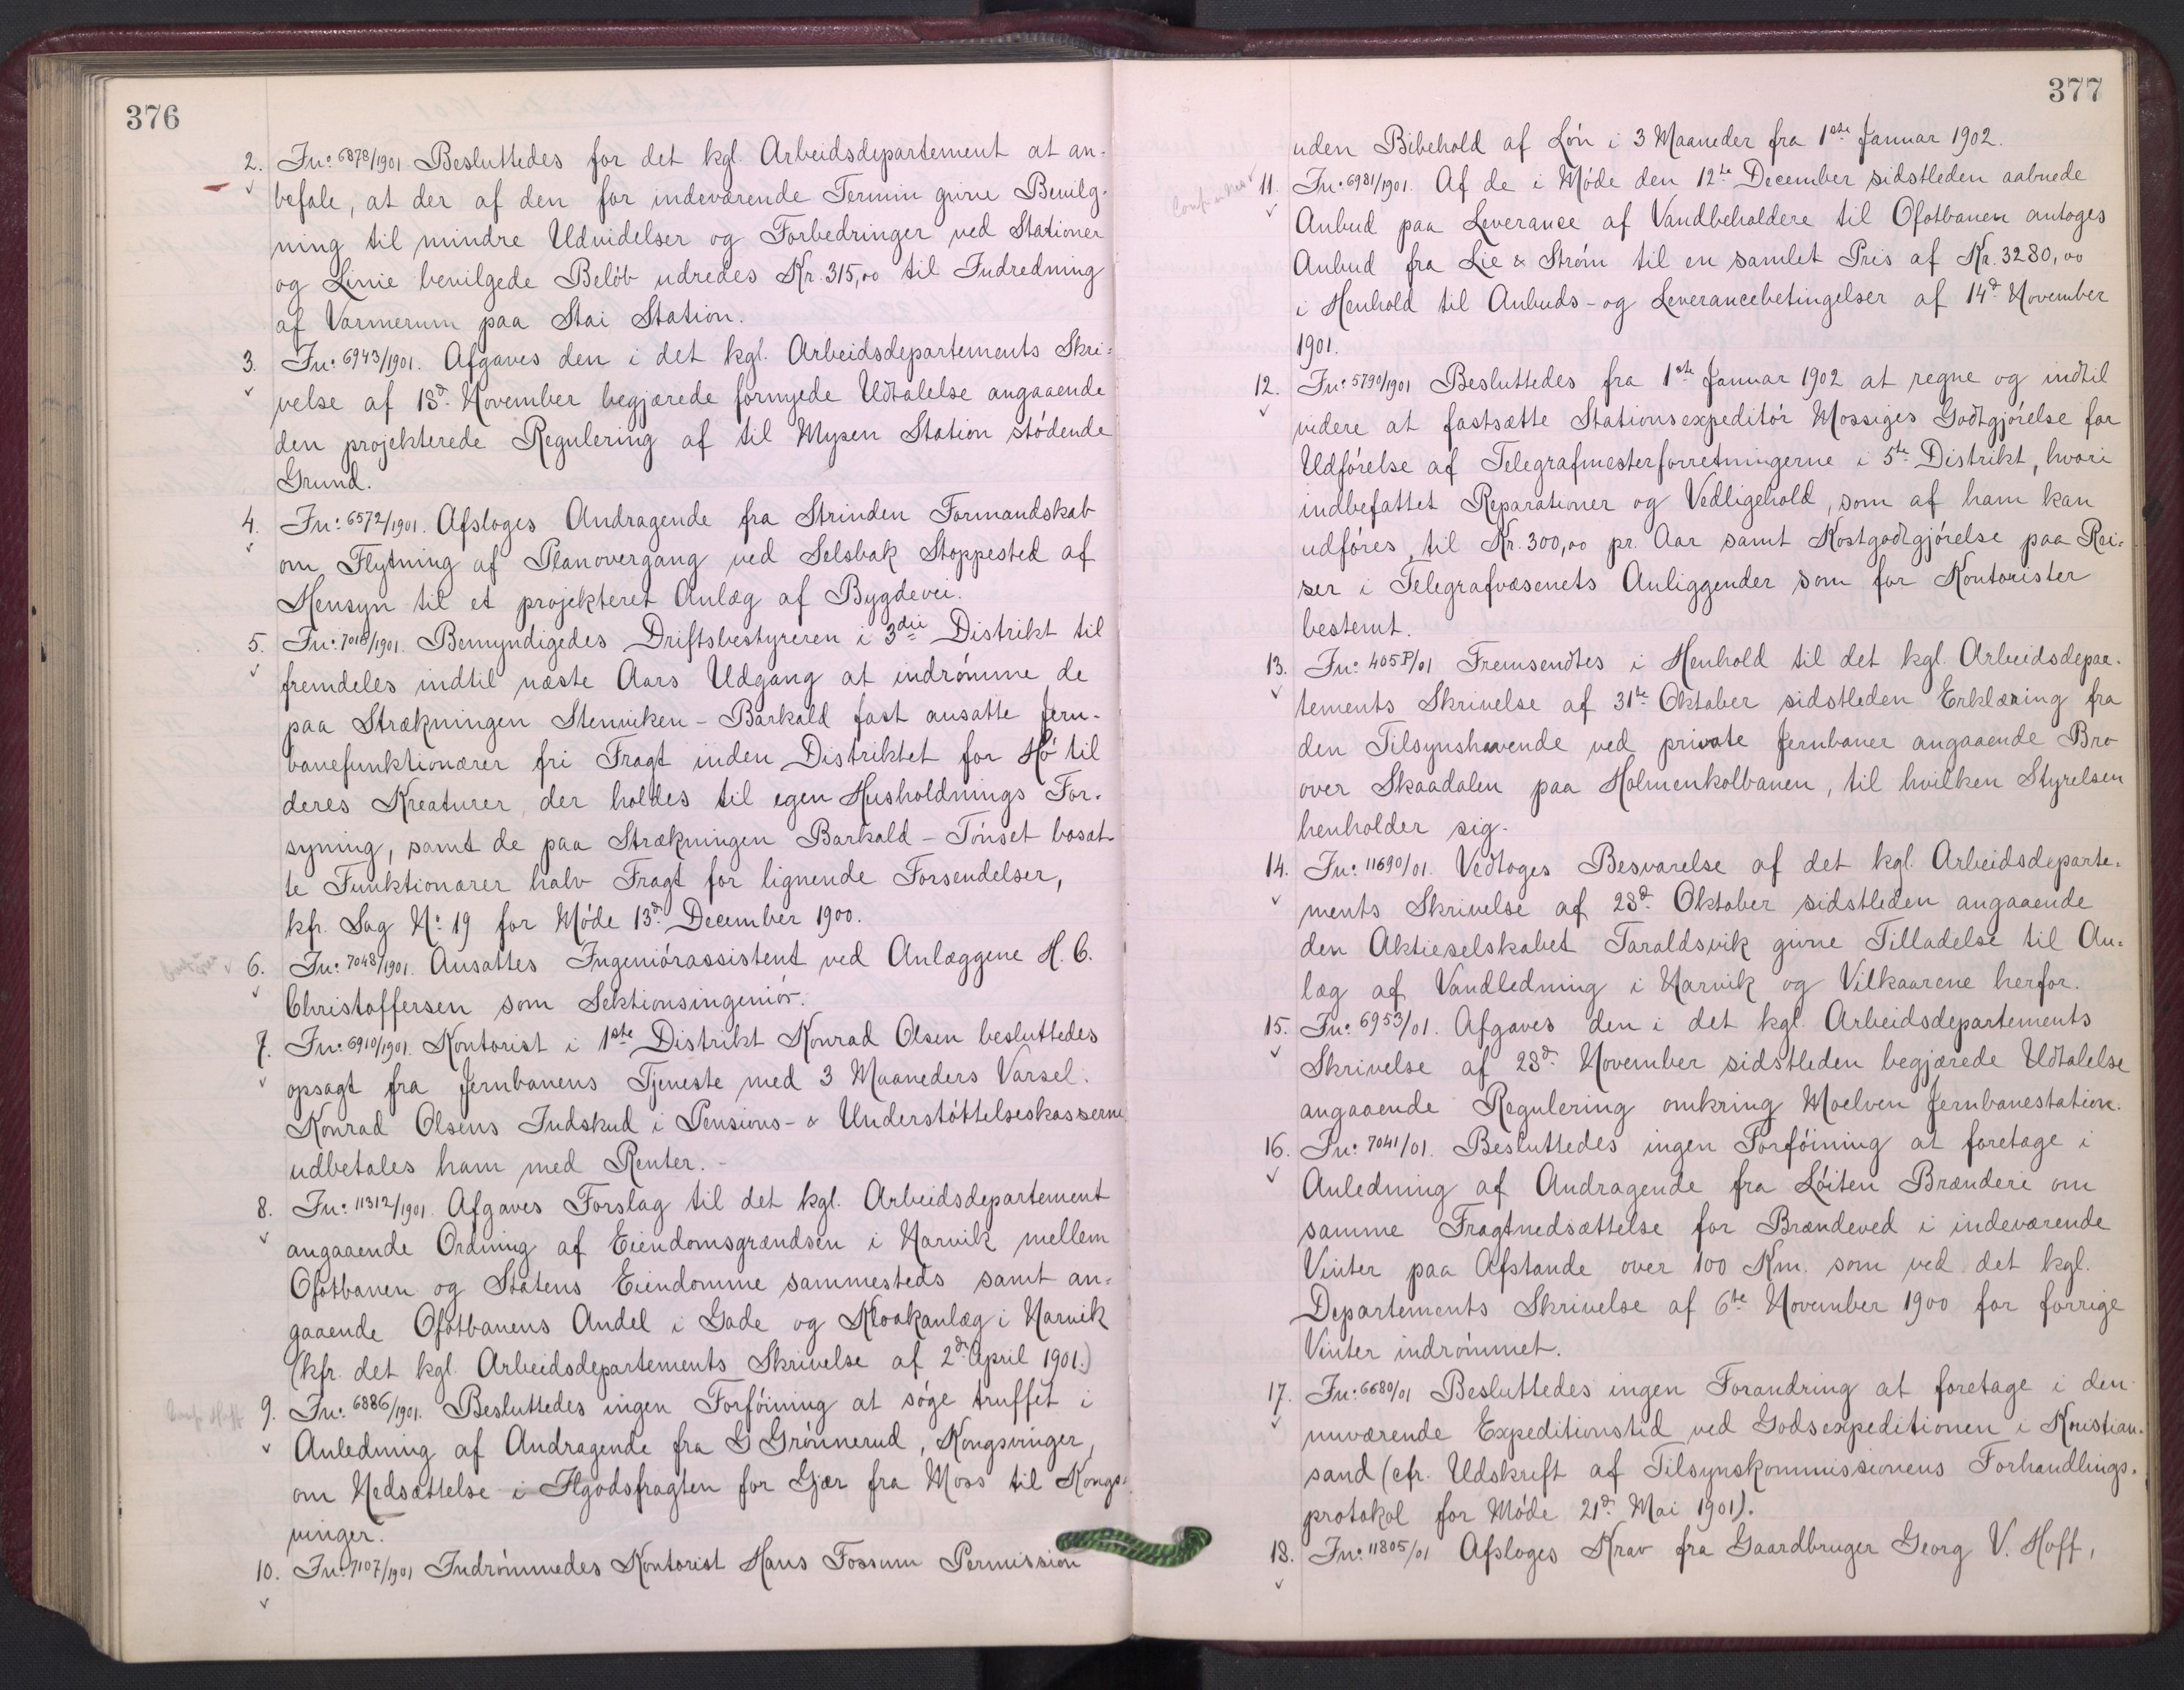 376
2. Jn: 6878/1901 Besluttedes for det kgl. Arbeidsdepartement at an-
befale, at der af den for indeværende Termin givne Bevilg-
ning til mindre Udvidelser og Forbedringer ved Stationer
og Linie bevilgede Beløb udredes Kr. 315,00 til Indredning
af Varmerum paa Stai Station.
3. Jn: 6943/1901. Afgaves den i det kgl. Arbeidsdepartements Skri-
velse af 18d. November begjærede fornyede Udtalelse angaaende
den projekterede Regulering af til Mysen Station stødende
Grund.
4. Jn: 6572/1901. Afsloges Andragende fra Strinden Formandskab
om Flytning af Planovergang ved Selsbak Stoppested af
Hensyn til et projekteret Anlæg af Bygdevei.
5. Jn: 7018/1901. Bemyndigedes Driftsbestyreren i 3die Distrikt til
fremdeles indtil næste Aars Udgang at indrømme de
paa Strækningen Stenviken - Barkald fast ansatte Jern-
banefunktionærer fri Fragt inden Distriktet for Hø til
deres Kreaturer, der holdes til egen Husholdnings For-
syning, samt de paa Strækningen Barkald - Tønset bosat-
te Funktionærer halv Fragt for lignende Forsendelser,
kfr. Sag No: 19 for Møde 13d. December 1900.
6. Jn: 7048/1901. Ansattes Ingeniørassistent ved Anlæggene H. C.
Christoffersen som Sektionsingeniør.
7. Jn: 6910/1901. Kontorist i 1ste Distrikt Konrad Olsen besluttedes
opsagt fra Jernbanens Tjeneste med 3 Maaneders Varsel.
Konrad Olsens Indskud i Pensions- & Understøttelseskasserne
udbetales ham med Renter. -
8. Jn: 11312/1901. Afgaves Forslag til det kgl. Arbeidsdepartement
angaaende Ordning af Eiendomsgrændsen i Narvik mellem
Ofotbanen og Statens Eiendomme sammesteds samt an-
gaaende Ofotbanens Andel i Gade og Kloakanlæg i Narvik
(kfr. det kgl. Arbeidsdepartements Skrivelse af 2d. April 1901.)
Conf. Hoff 9. Jn: 6886/1901. Besluttedes ingen Forføining at søge truffet i
Anledning af Andragende fra G Grønnerud, Kongsvinger,
om Nedsættelse i Ilgodsfragten for Gjær fra Moss til Kongs-
vinger.
10. Jn: 7107/1901 Indrømmedes Kontorist Hans Fossum Permission
377
uden Bibehold af Løn i 3 Maaneder fra 1ste Januar 1902.
11. Jn: 6981/1901. Af de i Møde den 12te December sidstleden aabnede
Anbud paa Leverance af Vandbeholdere til Ofotbanen antoges
Anbud fra Lie & Strøm til en samlet Pris af Kr. 3280,00
i Henhold til Anbuds- og Leverancebetingelser af 14d. November
1901.
12. Jn: 5790/1901 Besluttedes fra 1ste Januar 1902 at regne og indtil
videre at fastsætte Stationsexpeditør Mossiges Godtgjørelse for
Udførelse af Telegrafmesterforretningerne i 5te Distrikt, hvori
indbefattet Reparationer og Vedligehold, som af ham kan
udføres, til Kr. 300,00 pr. Aar samt Kostgodtgjørelse paa Rei-
ser i Telegrafvæsenets Anliggender som for Kontorister
bestemt.
13. Jn: 405P/01 Fremsendtes i Henhold til det kgl. Arbeidsdepar-
tements Skrivelse af 31te Oktober sidstleden Erklæring fra
den Tilsynshavende ved private Jernbaner angaaende Bro
over Skaadalen paa Holmenkolbanen, til hvilken Styrelsen
henholder sig.
14. Jn: 11690/01. Vedtoges Besvarelse af det kgl. Arbeidsdeparte-
ments Skrivelse af 28d. Oktober sidstleden angaaende
den Aktieselskabet Taraldsvik givne Tilladelse til An-
læg af Vandledning i Narvik og Vilkaarene herfor.
15. Jn: 6953/01. Afgaves den i det kgl. Arbeidsdepartements
Skrivelse af 28d. November sidstleden begjærede Udtalelse
angaaende Regulering omkring Moelven Jernbanestation.
16. Jn: 7041/01. Besluttedes ingen Forføining at foretage i
Anledning af Andragende fra Løiten Brænderi om
samme Fragtnedsættelse for Brændeved i indeværende
Vinter paa Afstande over 100 Km. som ved det kgl.
Departements Skrivelse af 6te November 1900 for forrige
Vinter indrømmet.
17. Jn: 6680/01 Besluttedes ingen Forandring at foretage i den
nuværende Expeditionstid ved Godsexpeditionen i Kristian-
sand (cfr. Udskrift af Tilsynskommissionens Forhandlings-
protokol for Møde 21d. Mai 1901).
18. Jn: 11805/01 Afsloges Krav fra Gaardbruger Georg V. Hoff,